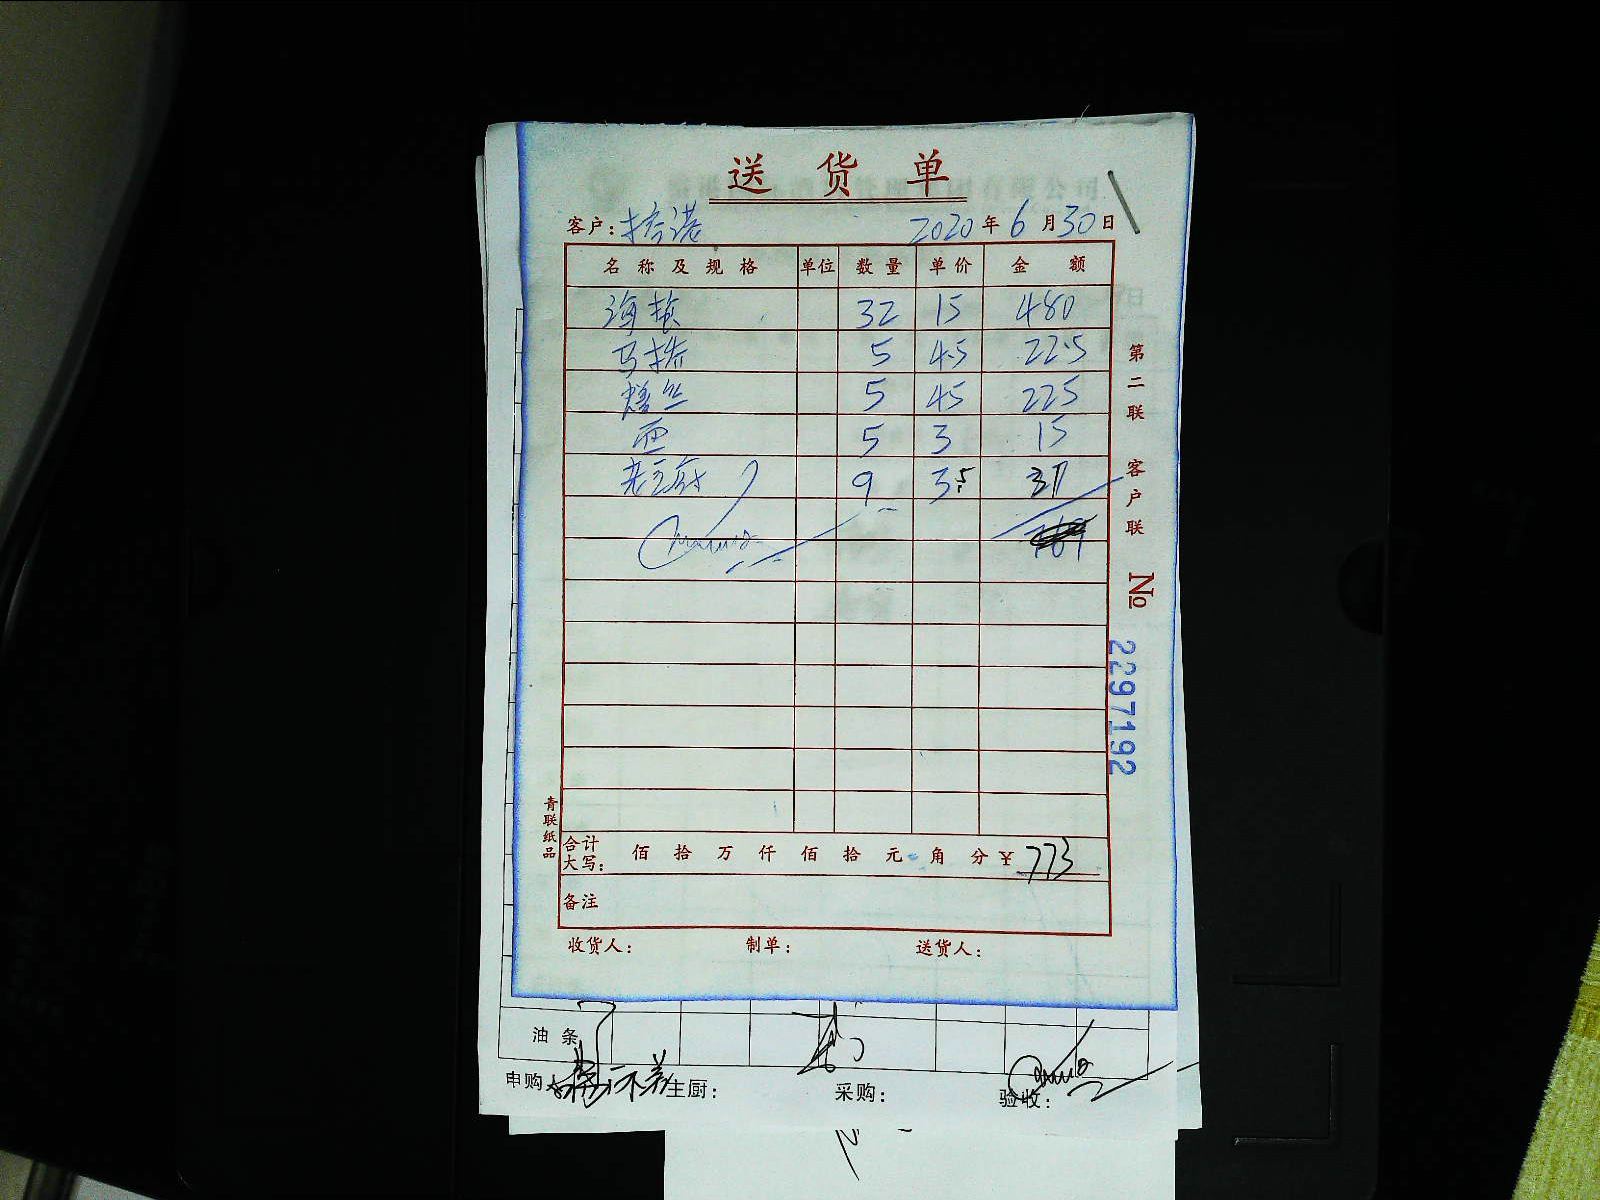 送货单
客户: 2020年6月30日
名称及规格 单位 数量 单价 金额
海 32 15 480
马桥 5 4.5 22.5
丝 5 45 225
面 5 3 15
9 3.5 31
合计大写: 佰 拾 万 仟 佰 拾 元 角 分 ¥ 773
备注
收货人: 制单: 送货人:
第二联 客户联
No 2297192
青联纸品
油条
申购人 主厨: 采购: 验收: